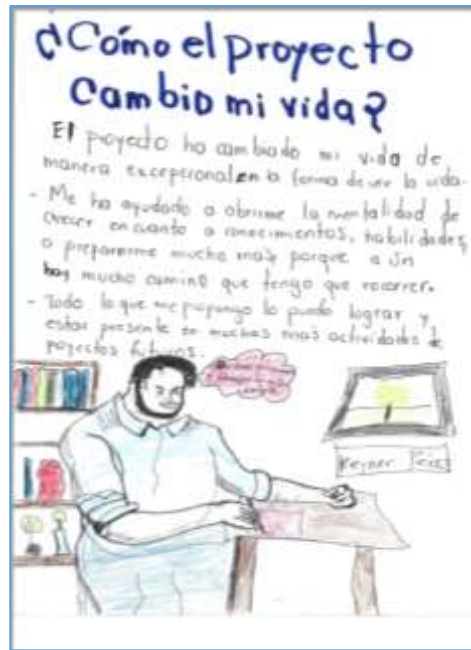 ¿Cómo el proyecto
Cambio mi vida?
El poyecto ha cambiado mi vida de
manera excepcional en la forma de ver la vida.
- Me ha ayudado a abrirme la mentalidad de
crecer en cuanto a conocimientos, habilidades,
a prepararme mucho más porque a un
hay mucho camino que tengo que recorrer.
- Todo lo que me propongo lo puedo lograr y
estar presente en muchas mas actividades de
poyectos futuros.
Keyner